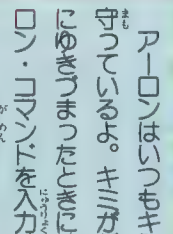 アーロンはいつもキ
守っているよ。キミが
にゆきづまったときに
ロン・コマンドを入力